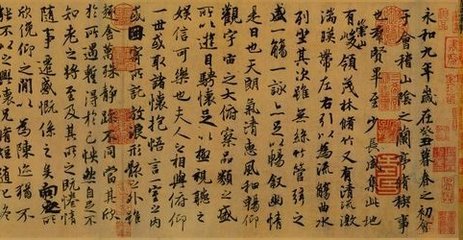 永和九年歲在癸丑暮春之初會
于會稽山陰之蘭亭脩稧事
也羣賢畢至少長咸集此地
有崇山峻領茂林脩竹又有清流激
湍暎帶左右引以為流觴曲水
列坐其次雖無絲竹管弦之
盛一觴一詠亦足以暢敘幽情
是日也天朗氣清惠風和暢仰
觀宇宙之大俯察品類之盛
所以遊目騁懷足以極視聽之
娛信可樂也夫人之相與俯仰
一世或取諸懷抱悟言一室之內
或因寄所託放浪形骸之外雖
趣舍萬殊靜躁不同當其欣
於所遇暫得於己怏然自足不
知老之將至及其所之既惓情
隨事遷感慨係之矣向之所
欣俛仰之閒以為陳迹猶不
能不以之興懷況脩短隨化終